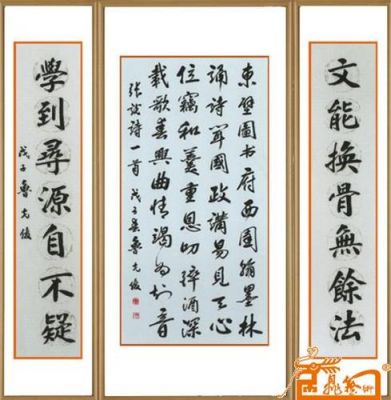 文能換骨無餘法
東壁圖书府西園翰墨林
誦诗闻國政講易見天心
位竊和羹重恩叨醉酒深
載歌春興曲情竭為知音
張說詩一首 戊子春魯
學到尋源自不疑
戊子魯